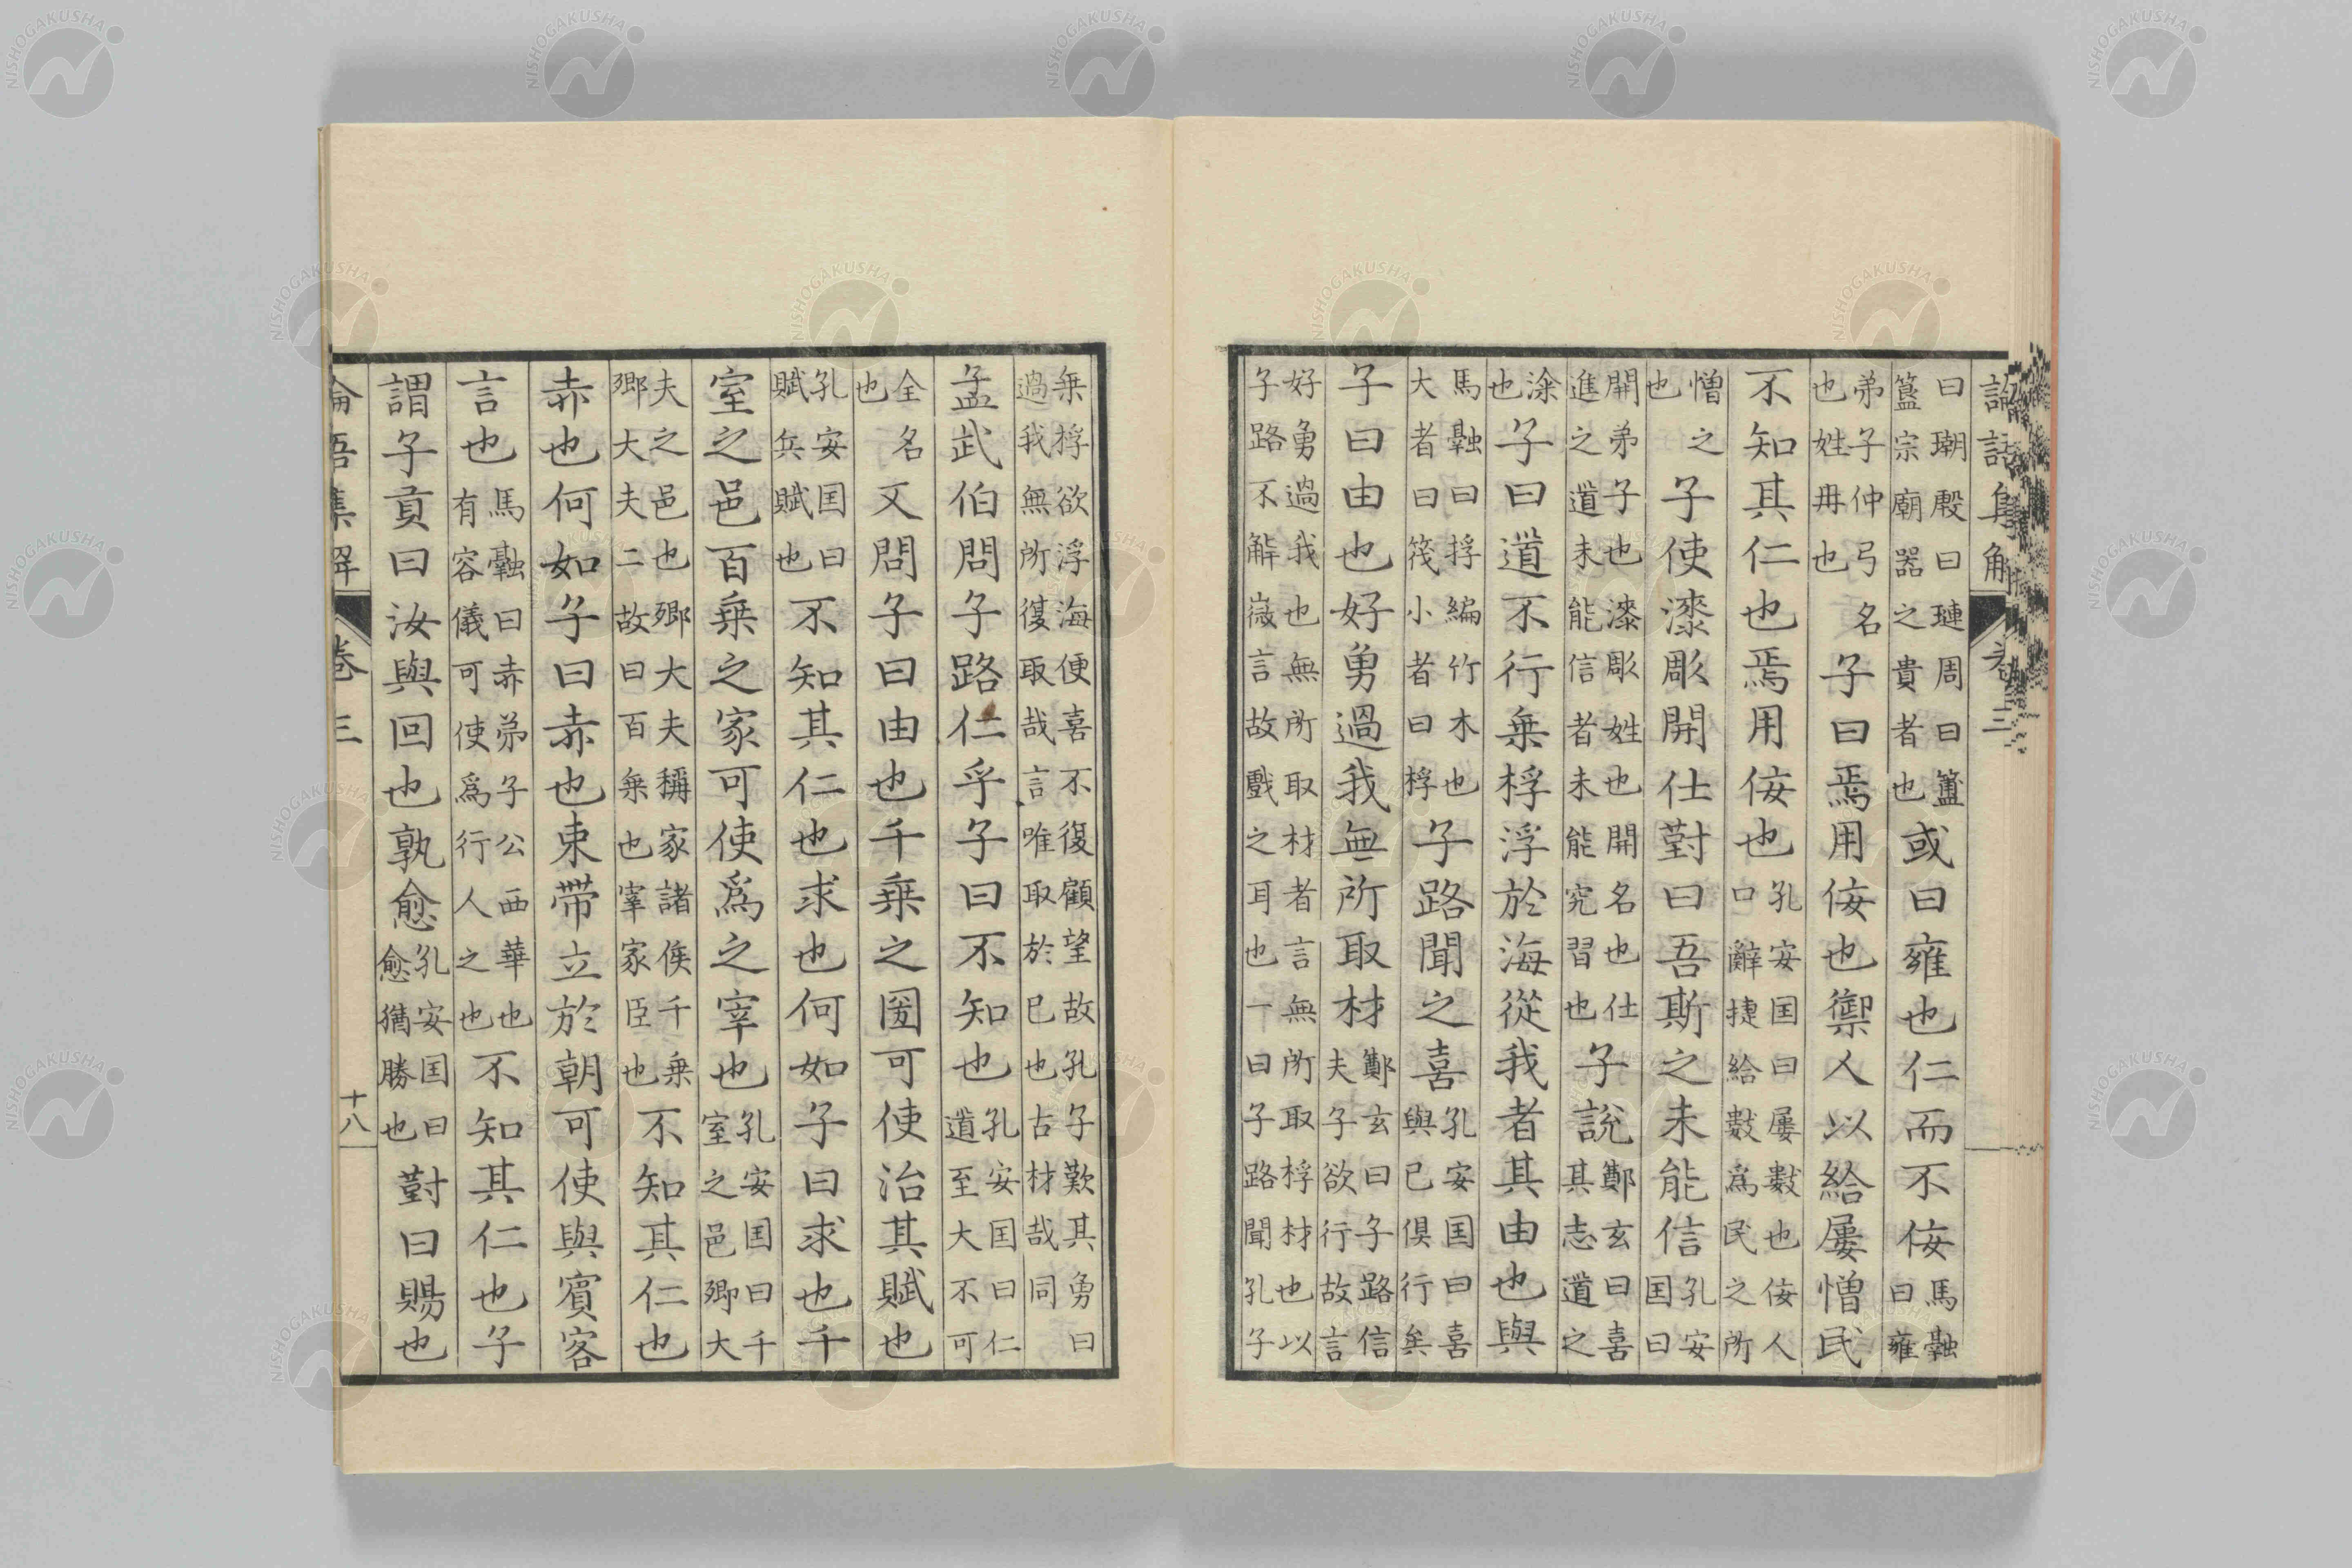 論語集解 卷三
曰瑚殷曰璉周曰簠簋宗廟器之貴者也或曰雍也仁而不佞馬融曰雍
弟子仲弓名也姓冉也子曰焉用佞也禦人以給屢憎民
不知其仁也焉用佞也孔安囯曰屢數也佞人口辭捷給數爲民之所
憎之也子使漆彫開仕對曰吾斯之未能信孔安囯曰
開弟子也漆彫姓也開名也仕進之道未能信者未能究習也子說鄭玄曰喜其志道之
深也子曰道不行乗桴浮於海從我者其由也與
馬融曰桴編竹木也大者曰筏小者曰桴子路聞之喜孔安囯曰喜與己俱行矣
子曰由也好勇過我無所取材鄭玄曰子路信夫子欲行故言
好勇過我也無所取材者言無所取桴材也以子路不解微言故戲之耳也一曰子路聞孔子
乗桴欲浮海便喜不復顧望故孔子歎其勇曰過我無所復取哉言唯取於己也古材哉同
孟武伯問子路仁乎子曰不知也孔安囯曰仁道至大不可
全名也又問子曰由也千乗之國可使治其賦也
孔安囯曰賦兵賦也不知其仁也求也何如子曰求也千
室之邑百乗之家可使爲之宰也孔安囯曰千室之邑卿大
夫之邑也卿大夫稱家諸侯千乗卿大夫二故曰百乗也宰家臣也不知其仁也
赤也何如子曰赤也束帯立於朝可使與賓客
言也馬融曰赤弟子公西華也有容儀可使爲行人之也不知其仁也子
謂子貢曰汝與回也孰愈孔安囯曰愈猶勝也對曰賜也
論語集解 卷三 十八
NISHOGAKUSHA